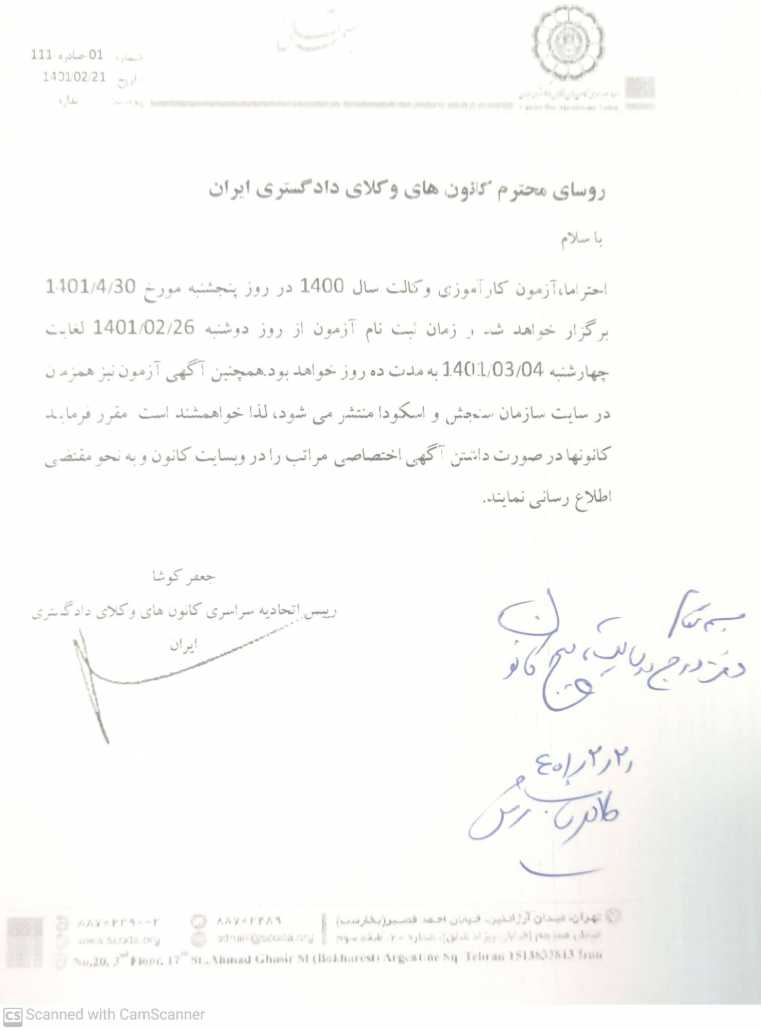 بسمه تعالی
شماره 01 صادره 111
تاریخ 1401/02/21
پیوست ندارد
روسای محترم کانون های وکلای دادگستری ایران
با سلام
احتراما،آزمون کارآموزی وکالت سال 1400 در روز پنجشنبه مورخ 1401/4/30
برگزار خواهد شد و زمان ثبت نام آزمون از روز دوشنبه 1401/02/26 لغایت
چهارشنبه 1401/03/04 به مدت ده روز خواهد بود.همچنین آگهی آزمون نیز همزمان
در سایت سازمان سنجش و اسکودا منتشر می شود، لذا خواهمشند است مقرر فرمایید
کانونها در صورت داشتن آگهی اختصاصی مراتب را در وبسایت کانون و به نحو مقتضی
اطلاع رسانی نمایند.
جعفر کوشا
رییس اتحادیه سراسری کانون های وکلای دادگستری
ایران
بسمه تعالی
تهران، میدان آرژانتین، خیابان احمد قصیر(بخارست)
۸۸۷۰۲۳۸۹
www.scoda.org
No.20, 3rd Floor, 17th St., Ahmad Ghasir St (Bokharest) Argentine Sq. Tehran
CS Scanned with CamScanner